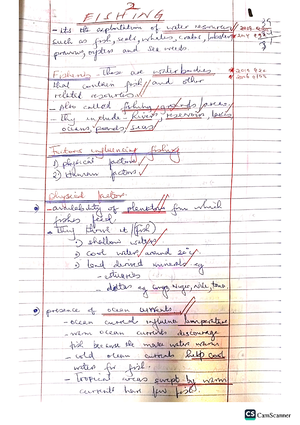 2
FISHING
- Its the exploitation of water resources
such as fish, seals, whales, crabs, lobsters
prawns, oysters and sea weeds.
Fisheries - These are water bodies
that contain fish and other
related resources.
- Also called fishing grounds
- They include - Rivers, reservoir, lakes
oceans, ponds, seas
Factors influencing fishing
1) physical factors
2) Human factors
Physical factors
- availability of plankton from which
fishes feed.
- They thrive at (fish)
1) shallow waters
2) cool water, around 20°C
3) land derived minerals eg
- deltas eg congo, Niger, nile
presence of ocean currents
- ocean current influence temperature
- warm ocean currents discourage
fish because the make water warm
- cold ocean currents cool
water for fish.
- Tropical areas swept by warm
currents have few fish.
CS CamScanner